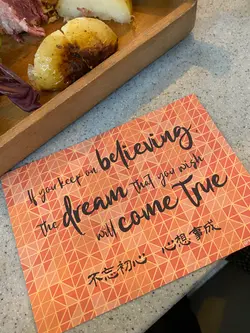 If you keep on believing,
the dream that you wish
will come true
不忘初心 心想事成